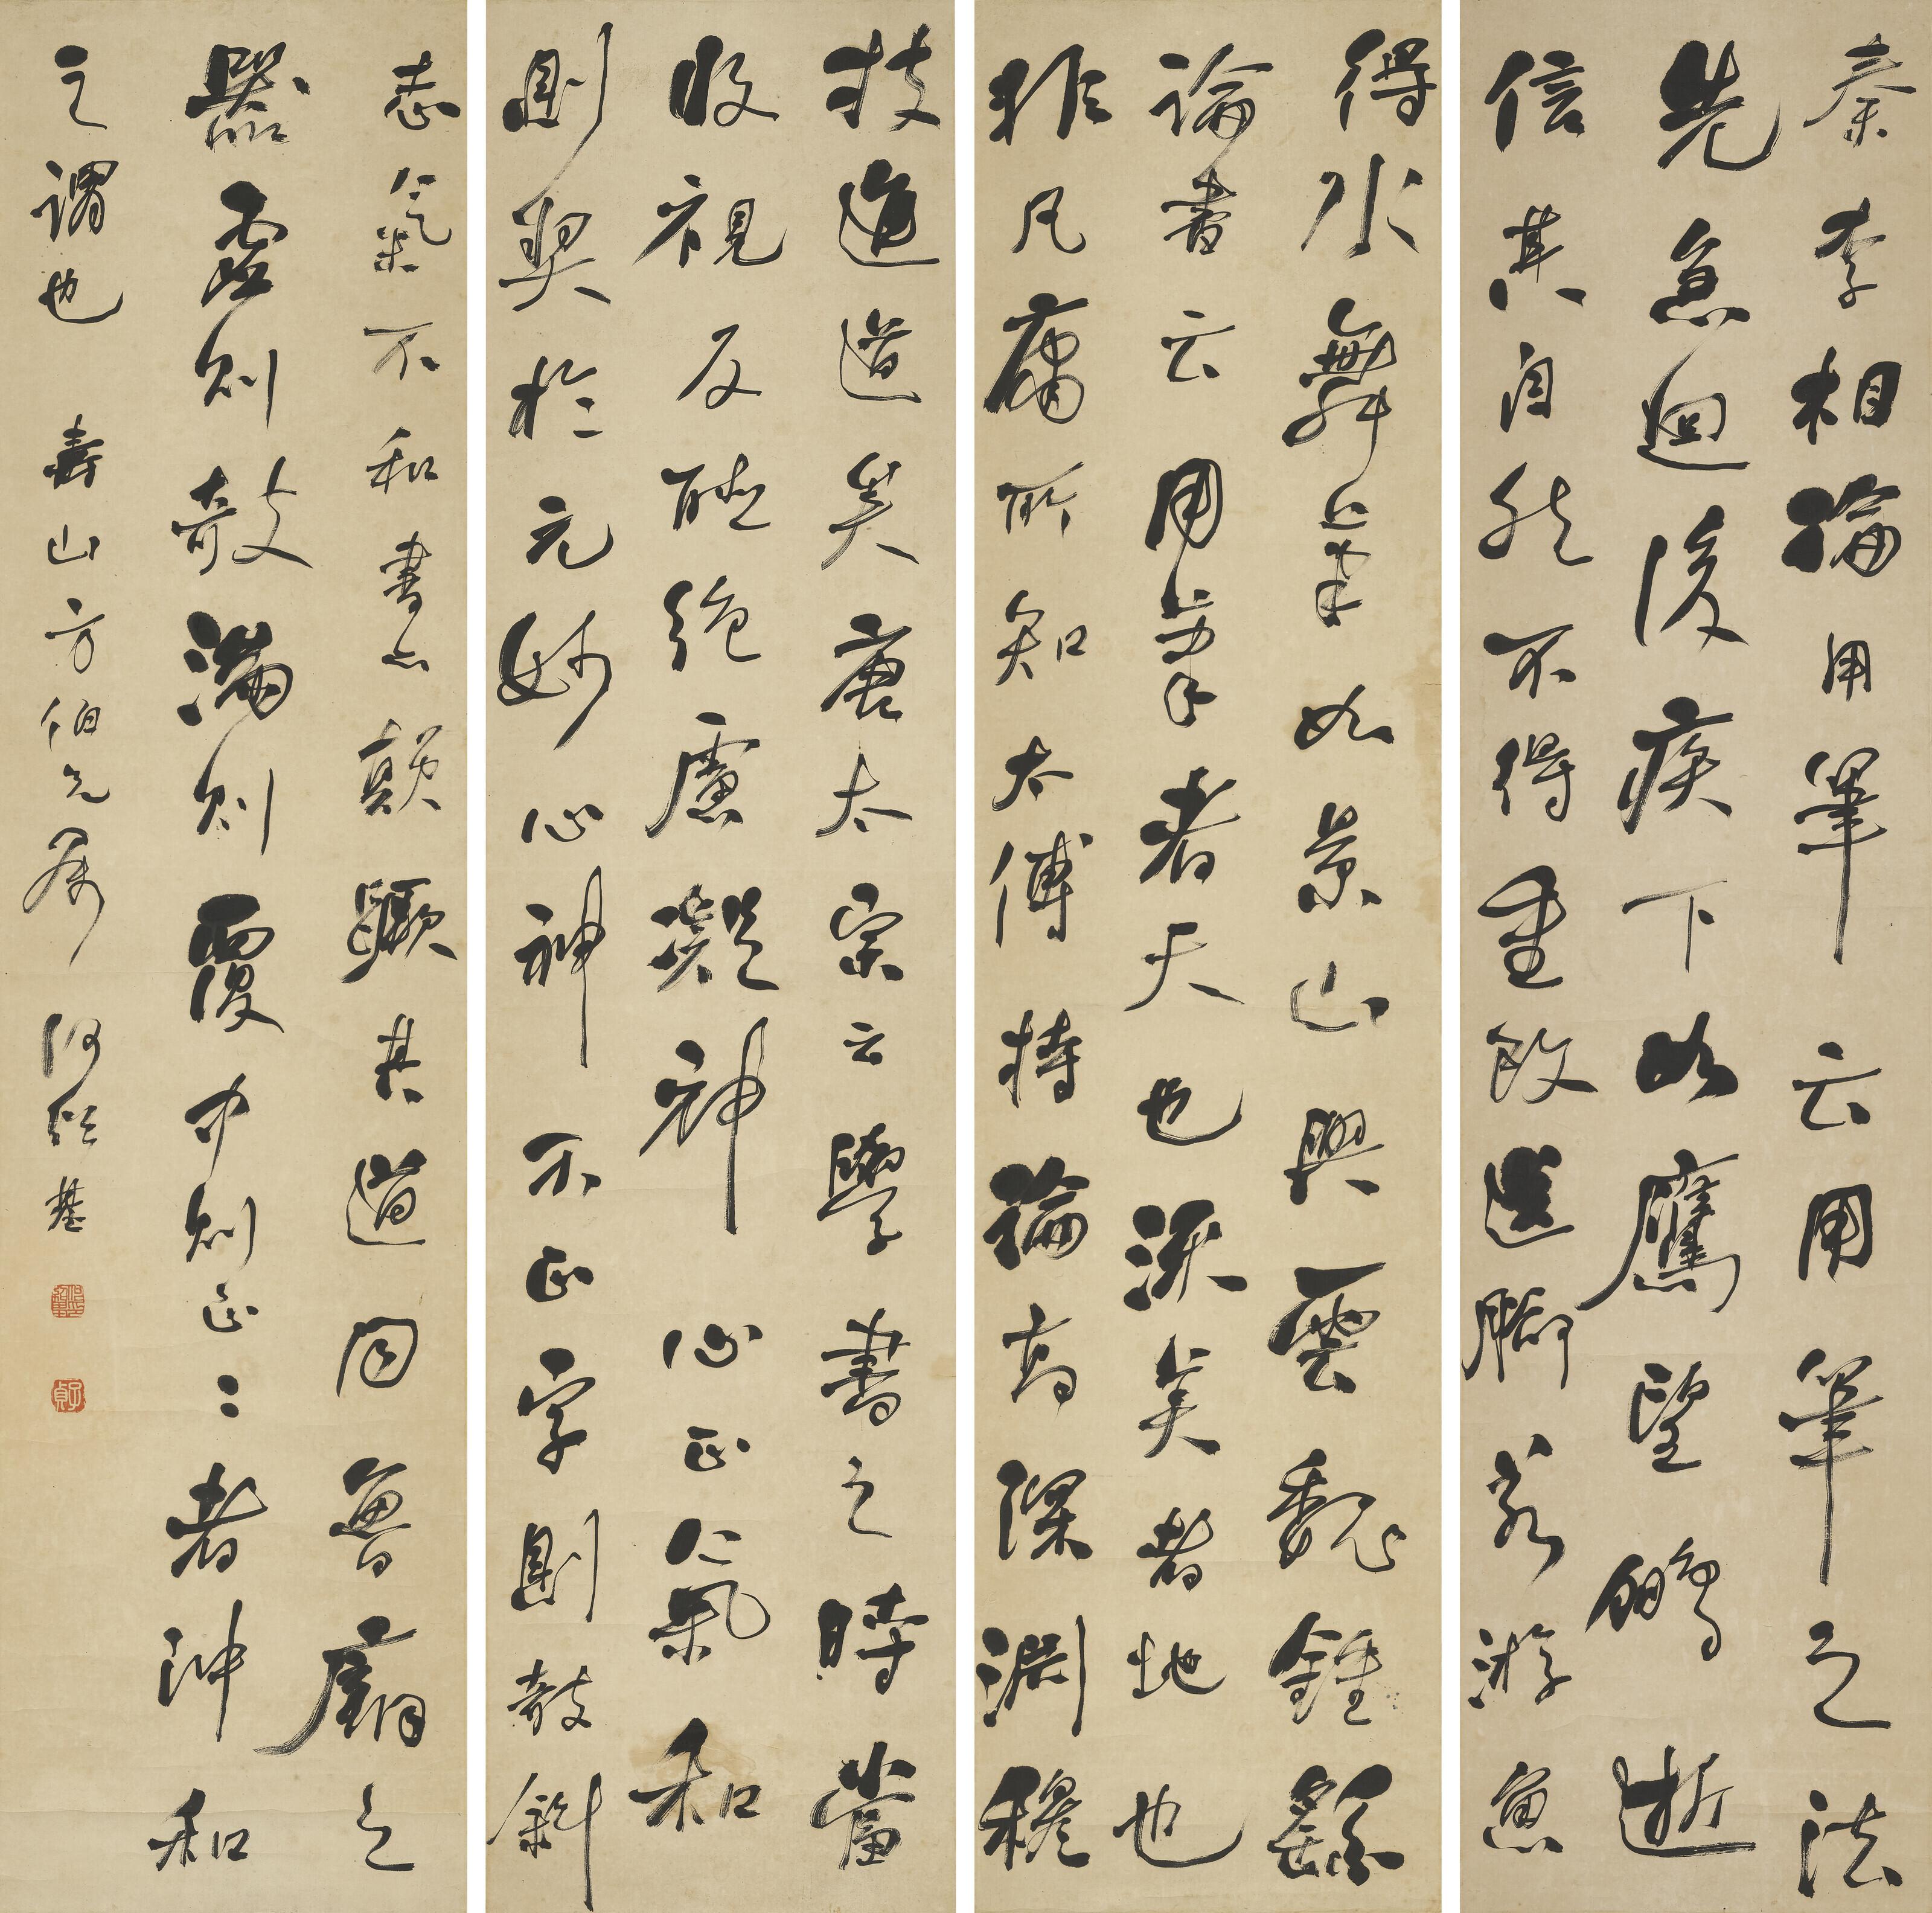 秦李相論用筆云用筆之法
先急迴後疾下如鷹望鵬逝
信其自然不得重改送腳若游魚
得水舞筆如景山興雲魏鍾繇
論書云用筆者天也流美者地也
非凡庸所知太傅持論高深淵穆
技進道矣唐太宗云學書之時當
收視反聽絕慮凝神心正氣和
則契於元妙心神不正字則敧斜
志氣不和書必顛蹶其道同魯廟之
器虛則敧滿則覆中則正〻者冲和
之謂也 壽山方伯兄属 何紹基
子貞